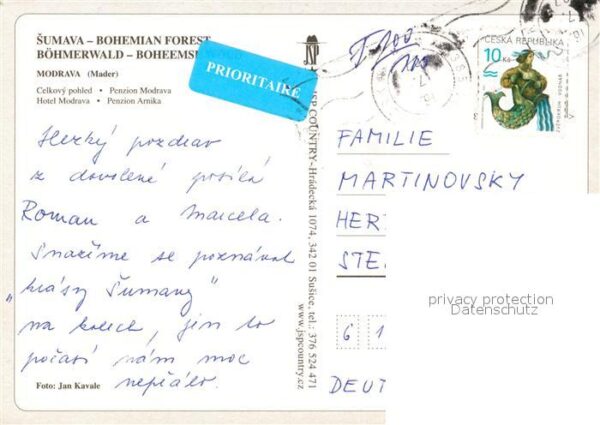 ŠUMAVA – BOHEMIAN FOREST
BÖHMERWALD – BOHEEMS
MODRAVA (Mader)
Celkový pohled • Penzion Modrava
Hotel Modrava • Penzion Arnika
PRIORITAIRE
JSP
JSP COUNTRY–Hrádecká 1074, 342 01 Sušice, tel.: 376 524 471
www.jspcountry.cz
ČESKÁ REPUBLIKA
10 Kč
Hezký pozdrav
z dovolené posílá
Roman a Marcela.
Snažíme se poznávat
"krásy Šumavy"
na kolech, jen to
počasí nám moc
nepřálo.
Foto: Jan Kavale
FAMILIE
MARTINOVSKY
HER
STE
6 1
DEUT
privacy protection
Datenschutz